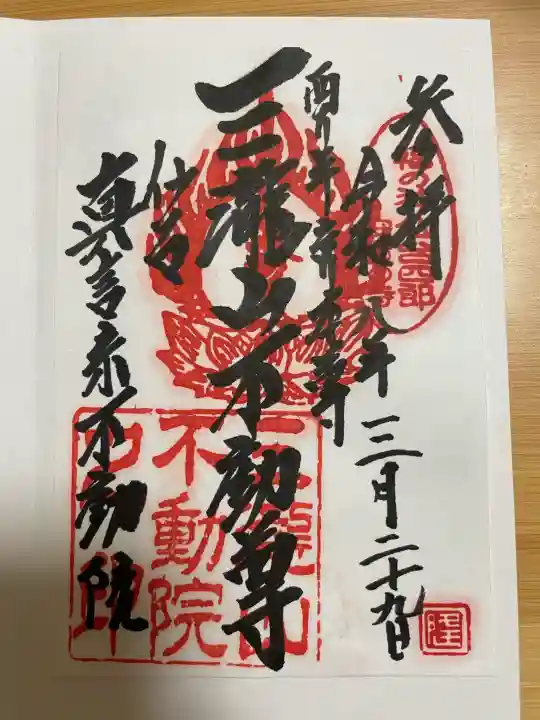 参拝
令和八年三月二十九日
酉年守本尊
三瀧山不動尊
仙台
真言宗不動院
三瀧山
不動院
之印